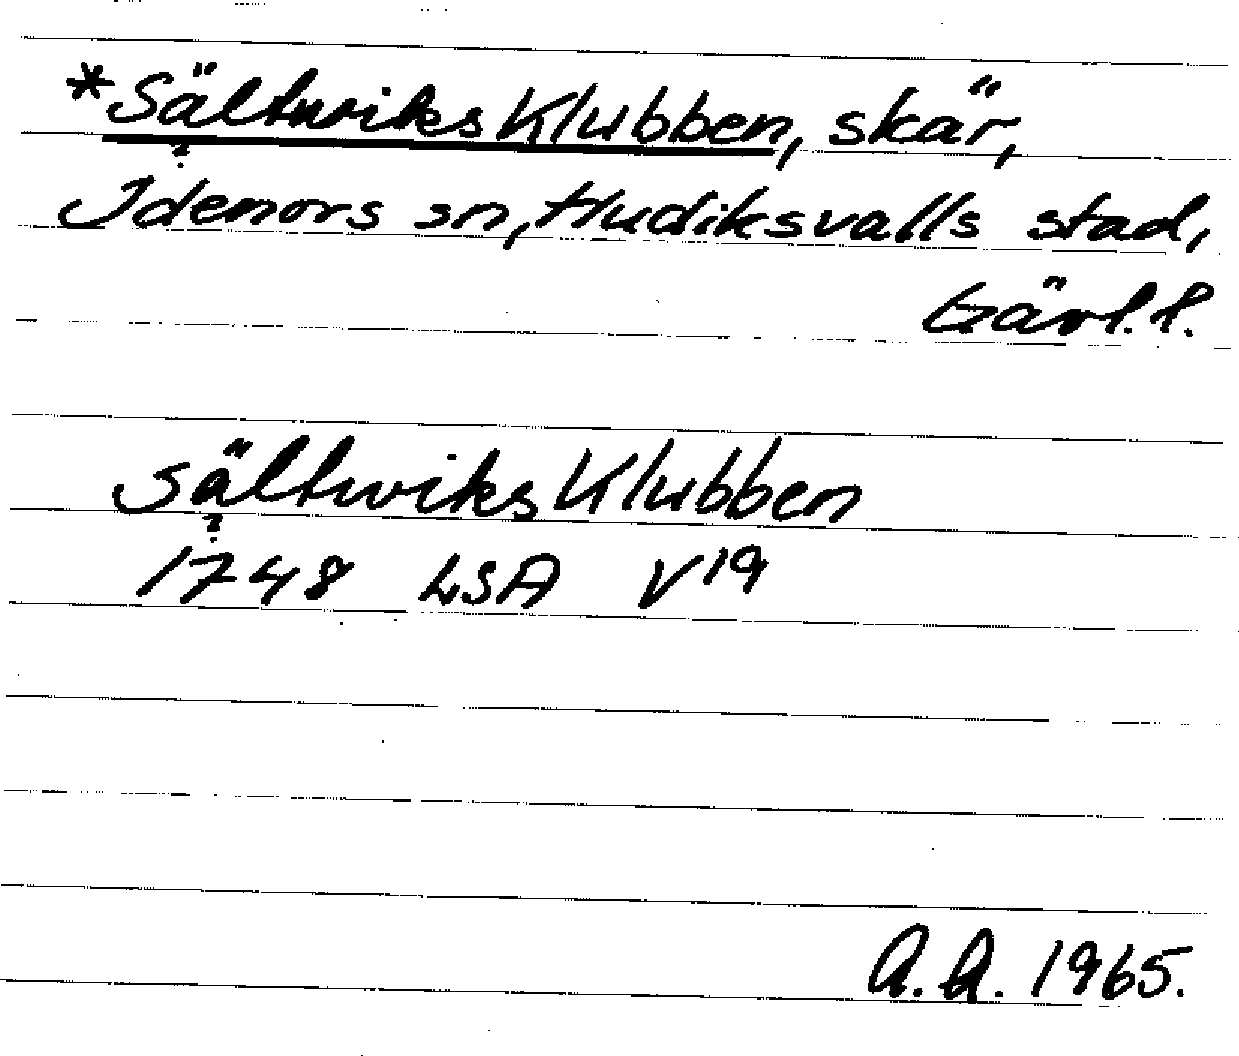 *Sältwiks Klubben, skär,
?
Idenors sn, Hudiksvalls stad,
Gävl.l.
Sältwiks Klubben
?
1748 LSA V19
A.A. 1965.